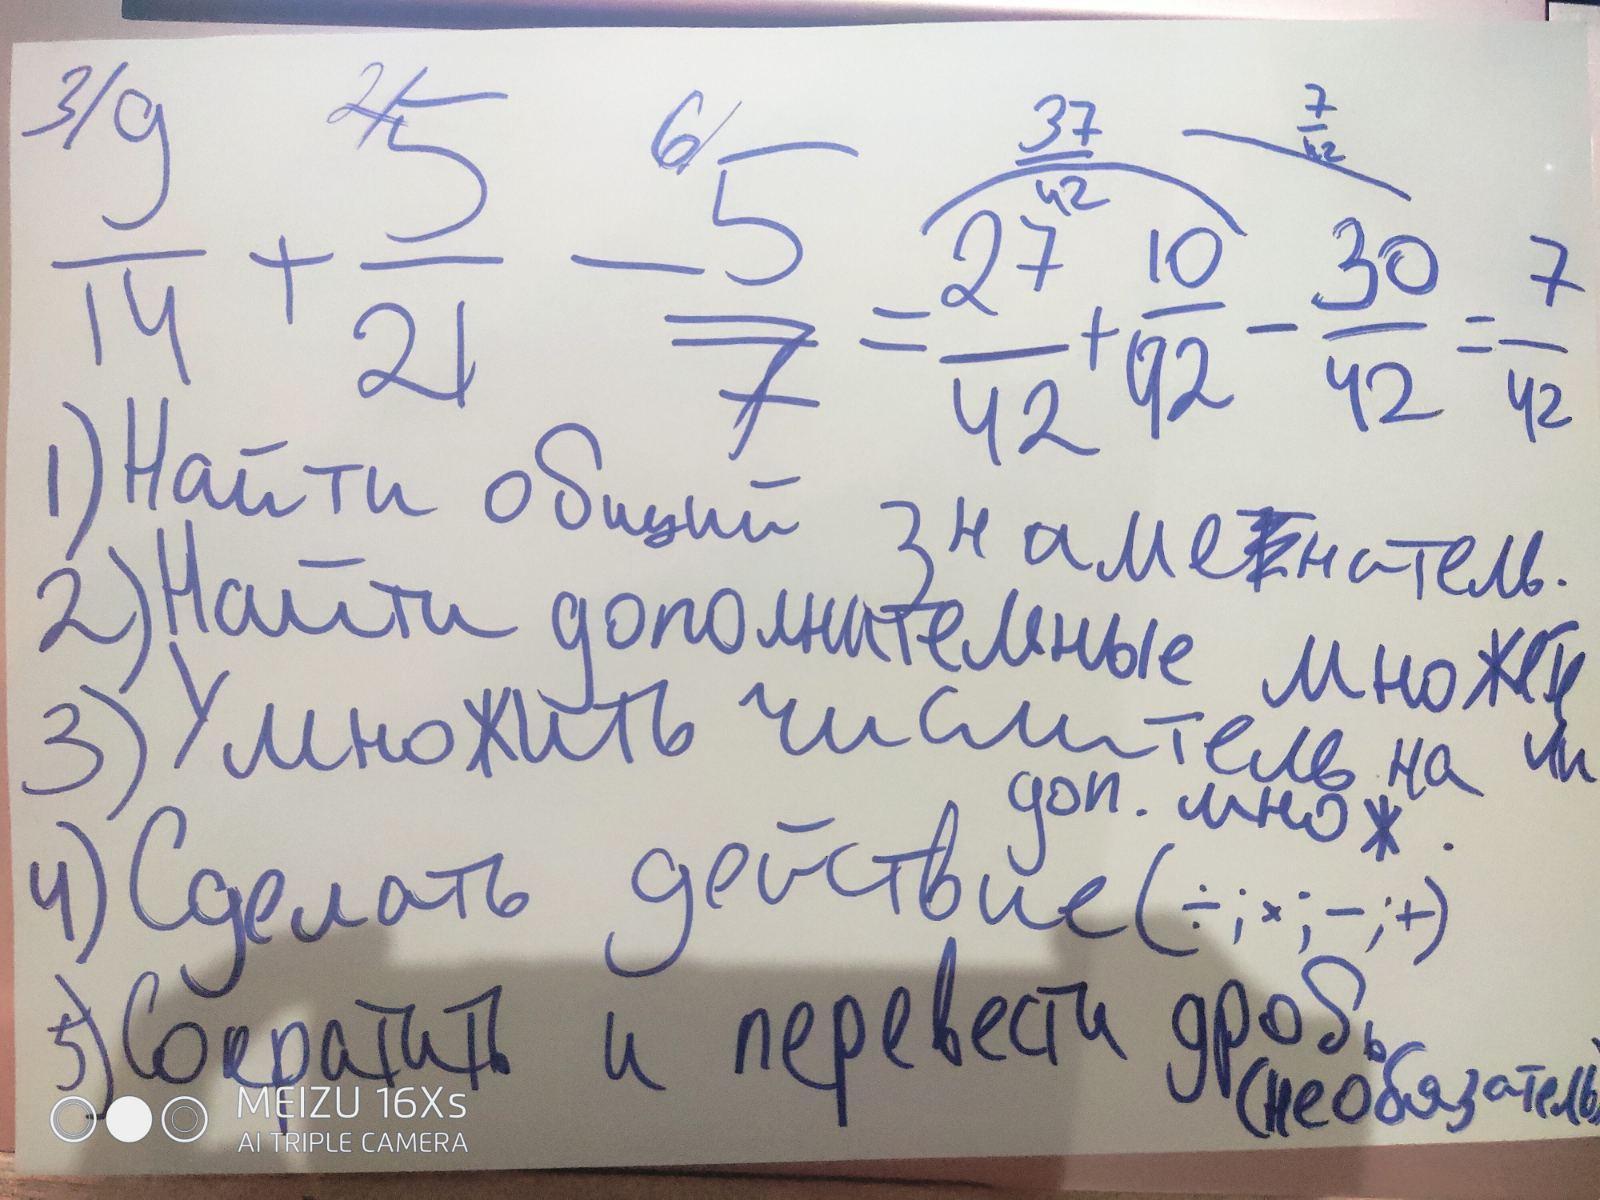 3/9/14 + 2/5/21 - 6/5/7 = 27/42 + 10/42 - 30/42 = 7/42
37/42
7/42
1) Найти общий знаменатель.
2) Найти дополнительные множители
3) Умножить числитель на
доп. множ.
4) Сделать действие (÷; ×; -; +)
5) Сократить и перевести дробь
(необязатель
MEIZU 16Xs
AI TRIPLE CAMERA